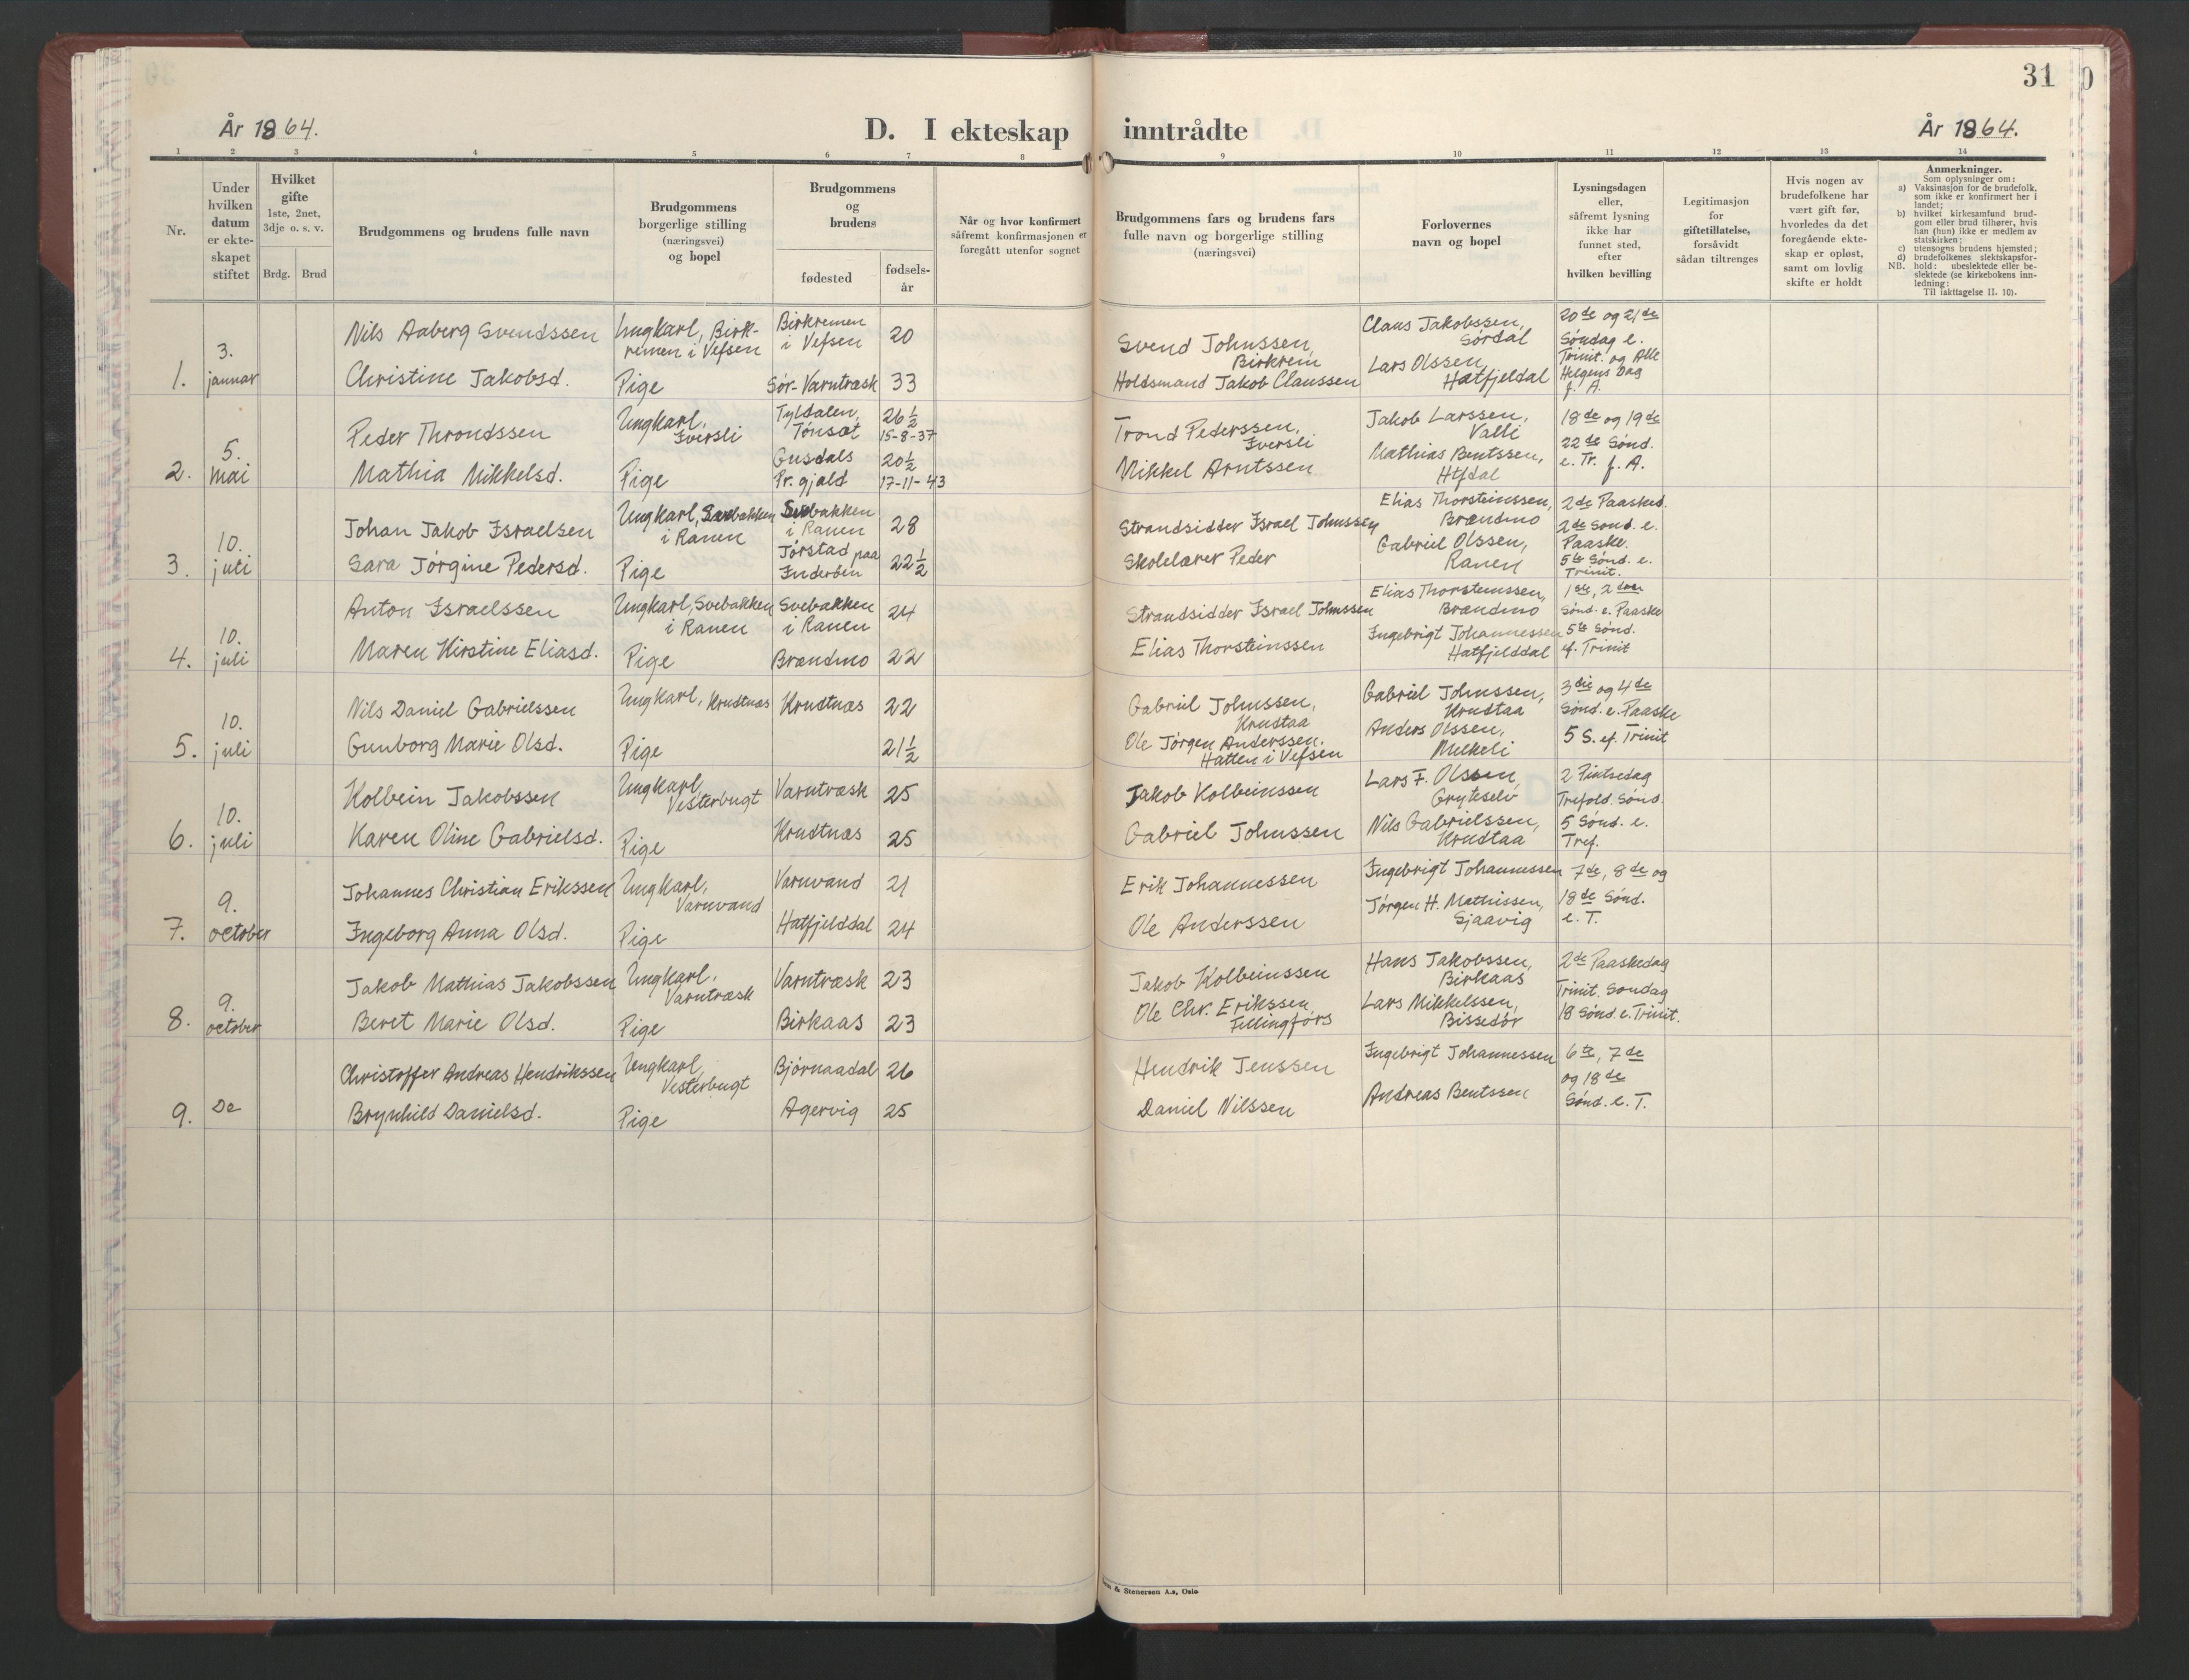 31
År 1864.
D. I ekteskap inntrådte
År 1864.
1 2 3 4 5 6 7 8 9 10 11 12 13 14
Nr.
Under
hvilken
datum
er ekte-
skapet
stiftet
Hvilket
gifte
1ste, 2net,
3dje o. s. v.
Brdg. Brud
Brudgommens og brudens fulle navn
Brudgommens
borgerlige stilling
(næringsvei)
og bopel
Brudgommens
og
brudens
fødested
fødsels-
år
Når og hvor konfirmert
såfremt konfirmasjonen er
foregått utenfor sognet
Brudgommens fars og brudens fars
fulle navn og borgerlige stilling
(næringsvei)
Forlovernes
navn og bopel
Lysningsdagen
eller,
såfremt lysning
ikke har
funnet sted,
efter
hvilken bevilling
Legitimasjon
for
giftetillatelse,
forsåvidt
sådan tiltrenges
Hvis nogen av
brudefolkene har
vært gift før,
hvorledes da det
foregående ekte-
skap er opløst,
samt om lovlig
skifte er holdt
Anmerkninger.
Som oplysninger om:
a) Vaksinasjon for de brudefolk,
som ikke er konfirmert her i
landet;
b) hvilket kirkesamfund brud-
gom eller brud tilhører, hvis
han (hun) ikke er medlem av
statskirken;
c) utensogns brudens hjemsted;
d) brudefolkenes slektskapsfor-
NB. hold: ubeslektede eller be-
slektede (se kirkebokens inn-
ledning:
Til iakttagelse II. 10).
1.
3.
januar
Nils Aaberg Svendssen
Christine Jakobsd.
Ungkarl, Birk-
remen i Vefsen
Pige
Birkremen
i Vefsen
20
Sør-Varntræsk 33
Svend Johnssen,
Birkrem
Holdsmand Jakob Claussen
Claus Jakobssen,
Sørdal
Lars Olssen,
Hatfjeldal
20de og 21de
Søndag e.
Trinit. og Alle
Helgens Dag
f. A.
2.
5.
mai
Peder Throndssen
Mathia Mikkelsd.
Ungkarl,
Iversli
Pige
Tyldalen,
Tønsæt
26 1/2
15-8-37
Gusdals
Pr. gjæld
20 1/2
17-11-43
Trond Pederssen,
Iversli
Mikkel Arntssen
Jakob Larssen,
Valli
Mathias Bentssen,
Htfdal
18de og 19de
22de Sønd.
e. Tr. f. A.
3.
10.
juli
Johan Jakob Israelsen
Sara Jørgine Pedersd.
Ungkarl, Svebakken
i Ranen
Pige
Svebakken
i Ranen
28
Jørstad paa
Inderøen
22 1/2
Strandsidder Israel Johnssen
Skolelærer Peder
Elias Thorsteinssen,
Brændmo
Gabriel Olssen,
Ranen
2de Paasked.
2de Sønd. e.
Paaske.
5te Sønd. e.
Trinit.
4.
10.
juli
Anton Israelssen
Maren Kirstine Eliasd.
Ungkarl, Svebakken
i Ranen
Pige
Svebakken
i Ranen
24
Brændmo 22
Strandsidder Israel Johnssen
Elias Thorsteinssen
Elias Thorsteinssen,
Brændmo
Ingebrigt Johannessen
Hatfjelddal
1ste, 2den
Sønd. e. Paaske
5te Sønd.
ef. Trinit
5.
10.
juli
Nils Daniel Gabrielssen
Gunborg Marie Olsd.
Ungkarl, Krudtnæs
Pige
Krudtnæs 22
21 1/2
Gabriel Johnssen,
Krudtaa
Ole Jørgen Anderssen,
Hatten i Vefsen
Gabriel Johnssen,
Krudtaa
Anders Olssen,
Mikkeli
3die og 4de
Sønd. e. Paaske
5 S. ef. Trinit
6.
10.
juli
Kolbein Jakobssen
Karen Oline Gabrielsd.
Ungkarl,
Vesterbugt
Pige
Varntræsk 25
Krudtnæs 25
Jakob Kolbeinssen
Gabriel Johnssen
Lars F. Olssen,
Grytselv
Nils Gabrielssen,
Krudtaa
2 Pintsedag
Trefold. Sønd.
5 Sønd. e.
Tref.
7.
9.
october
Johannes Christian Erikssen
Ingeborg Anna Olsd.
Ungkarl,
Varnvand
Pige
Varnvand 21
Hatfjelddal 24
Erik Johannessen
Ole Anderssen
Ingebrigt Johannessen
Jørgen H. Mathissen,
Sjaavig
7de, 8de og
18de Sønd.
e. T.
8.
9.
october
Jakob Mathias Jakobssen
Beret Marie Olsd.
Ungkarl,
Varntræsk
Pige
Varntræsk 23
Birkaas 23
Jakob Kolbeinssen
Ole Chr. Erikssen,
Fellingfors
Hans Jakobssen,
Birkaas
Lars Mikkelssen,
Bissedør
2de Paaskedag
Trinit. Søndag
18 Sønd. e. Trinit.
9.
Do
Christoffer Andreas Hendrikssen
Brynhild Danielsd.
Ungkarl,
Vesterbugt
Pige
Bjørnaadal 26
Agervig 25
Hendrik Jenssen
Daniel Nilssen
Ingebrigt Johannessen
Andreas Bentssen
6te, 7de
og 18de
Sønd. e. T.
& Stenersen A.s, Oslo